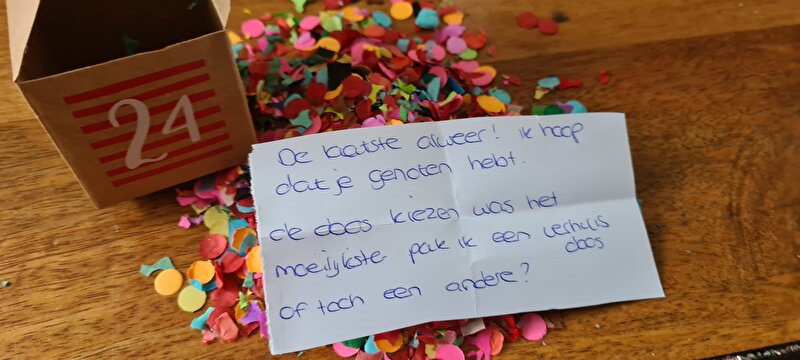 24
De laatste alweer! ik hoop
dat je genoten hebt.
de doos kiezen was het
moeilijkste pak ik een verhuis
doos
of toch een andere?